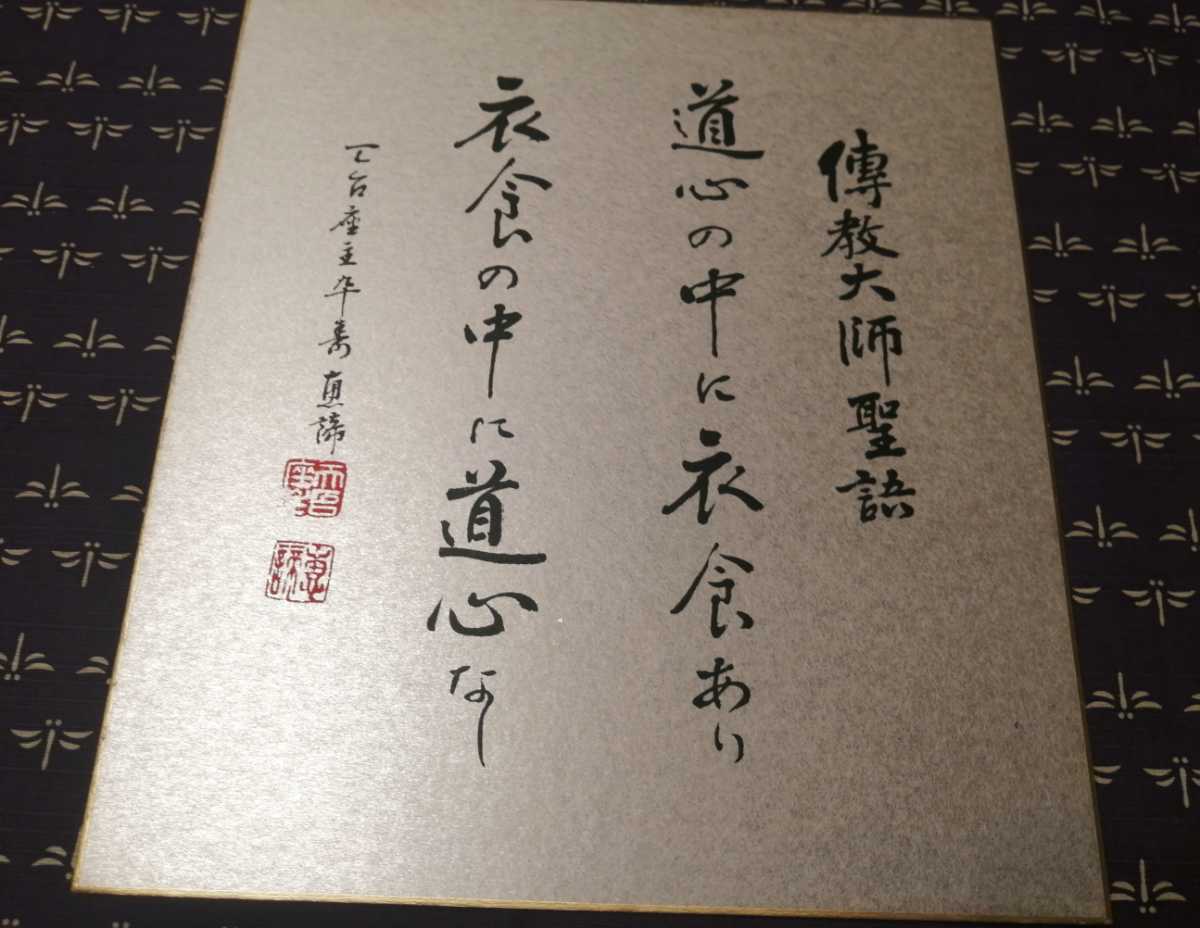 傳教大師聖語
道心の中に衣食あり
衣食の中に道心なし
天台座主卒寿恵諦